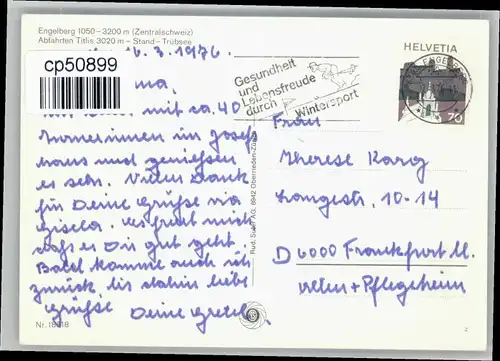 Engelberg 1050–3200 m (Zentralschweiz)
Abfahrten Titlis 3020 m – Stand – Trübsee
6.3.1976.
cp50899
HELVETIA
ENGELBERG
70
Gesundheit
und
Lebensfreude
durch
Wintersport
mit ca. 40
im Josef
haus und geniessen
es sehr. Vielen Dank
für Deine Grüße via
Gisela. es freut mich
dass es Dir gut geht.
Bald komme auch ich
zurück bis dahin liebe
Grüße Deine Gretel
Frau
Therese Karg
Langestr. 10-14
D 6000 Frankfurt M.
Alten + Pflegeheim
Rud. Suter AG, 8942 Oberrieden-Zürich
Nr. 18118